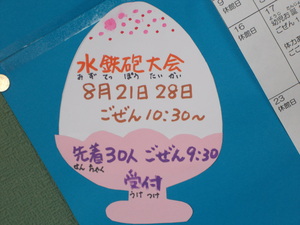 水鉄砲大会
みず てっぽう たいかい
8月21日28日
ごぜん10:30～
先着30人 ごぜん9:30
せんちゃく
受付
うけつけ
休館日
16
休館日
17
ごぜん
23
休館日